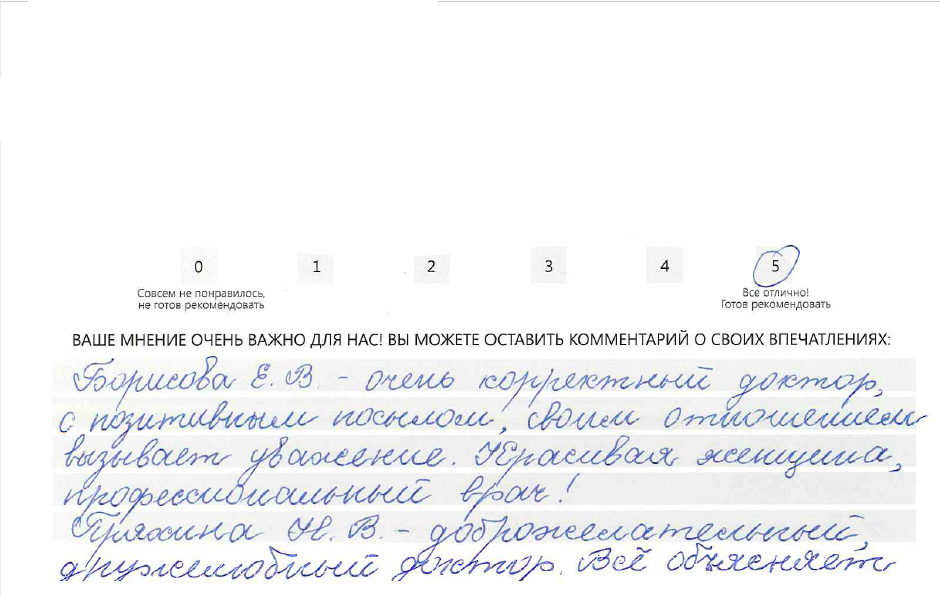 0 1 2 3 4 5
Совсем не понравилось, Все отлично!
не готов рекомендовать Готов рекомендовать
ВАШЕ МНЕНИЕ ОЧЕНЬ ВАЖНО ДЛЯ НАС! ВЫ МОЖЕТЕ ОСТАВИТЬ КОММЕНТАРИЙ О СВОИХ ВПЕЧАТЛЕНИЯХ:
Борисова Е. В. - очень корректный доктор,
с позитивным посылом, своим отношением
вызывает уважение. Красивая женщина,
профессиональный врач!
Пряхина Н. В. - доброжелательный,
дружелюбный доктор. Всё объясняет